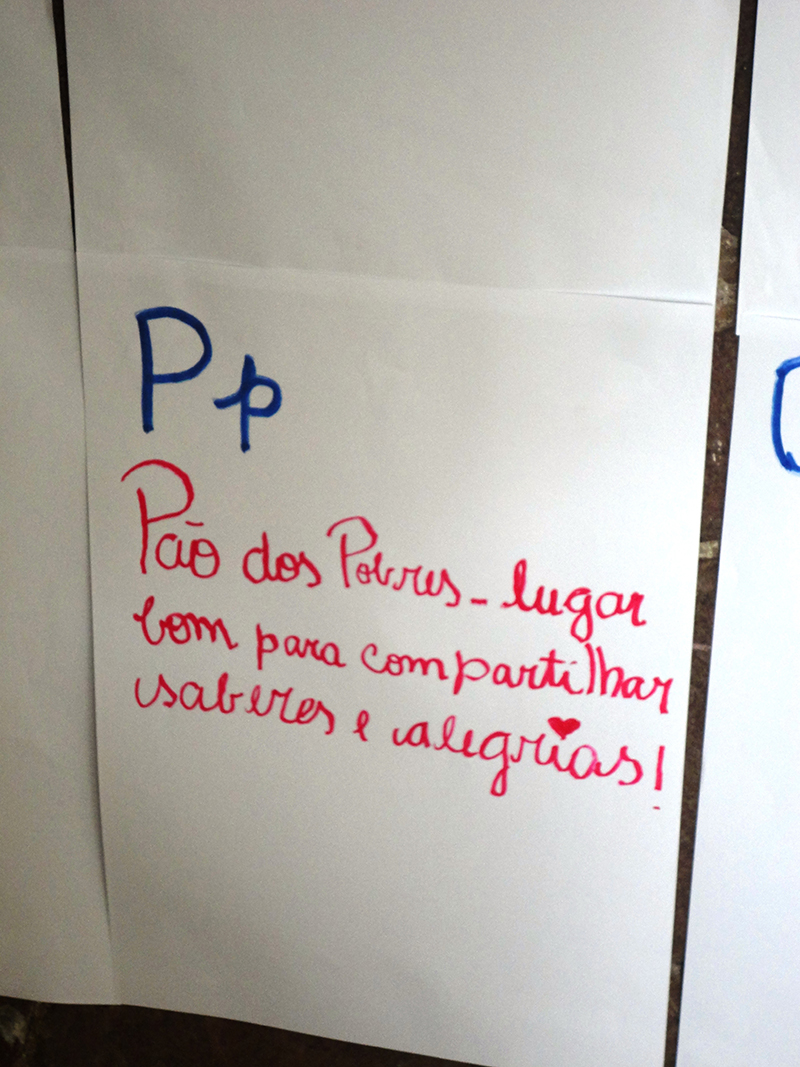 P p
Pão dos Pobres - lugar
bom para compartilhar
saberes e alegrias!